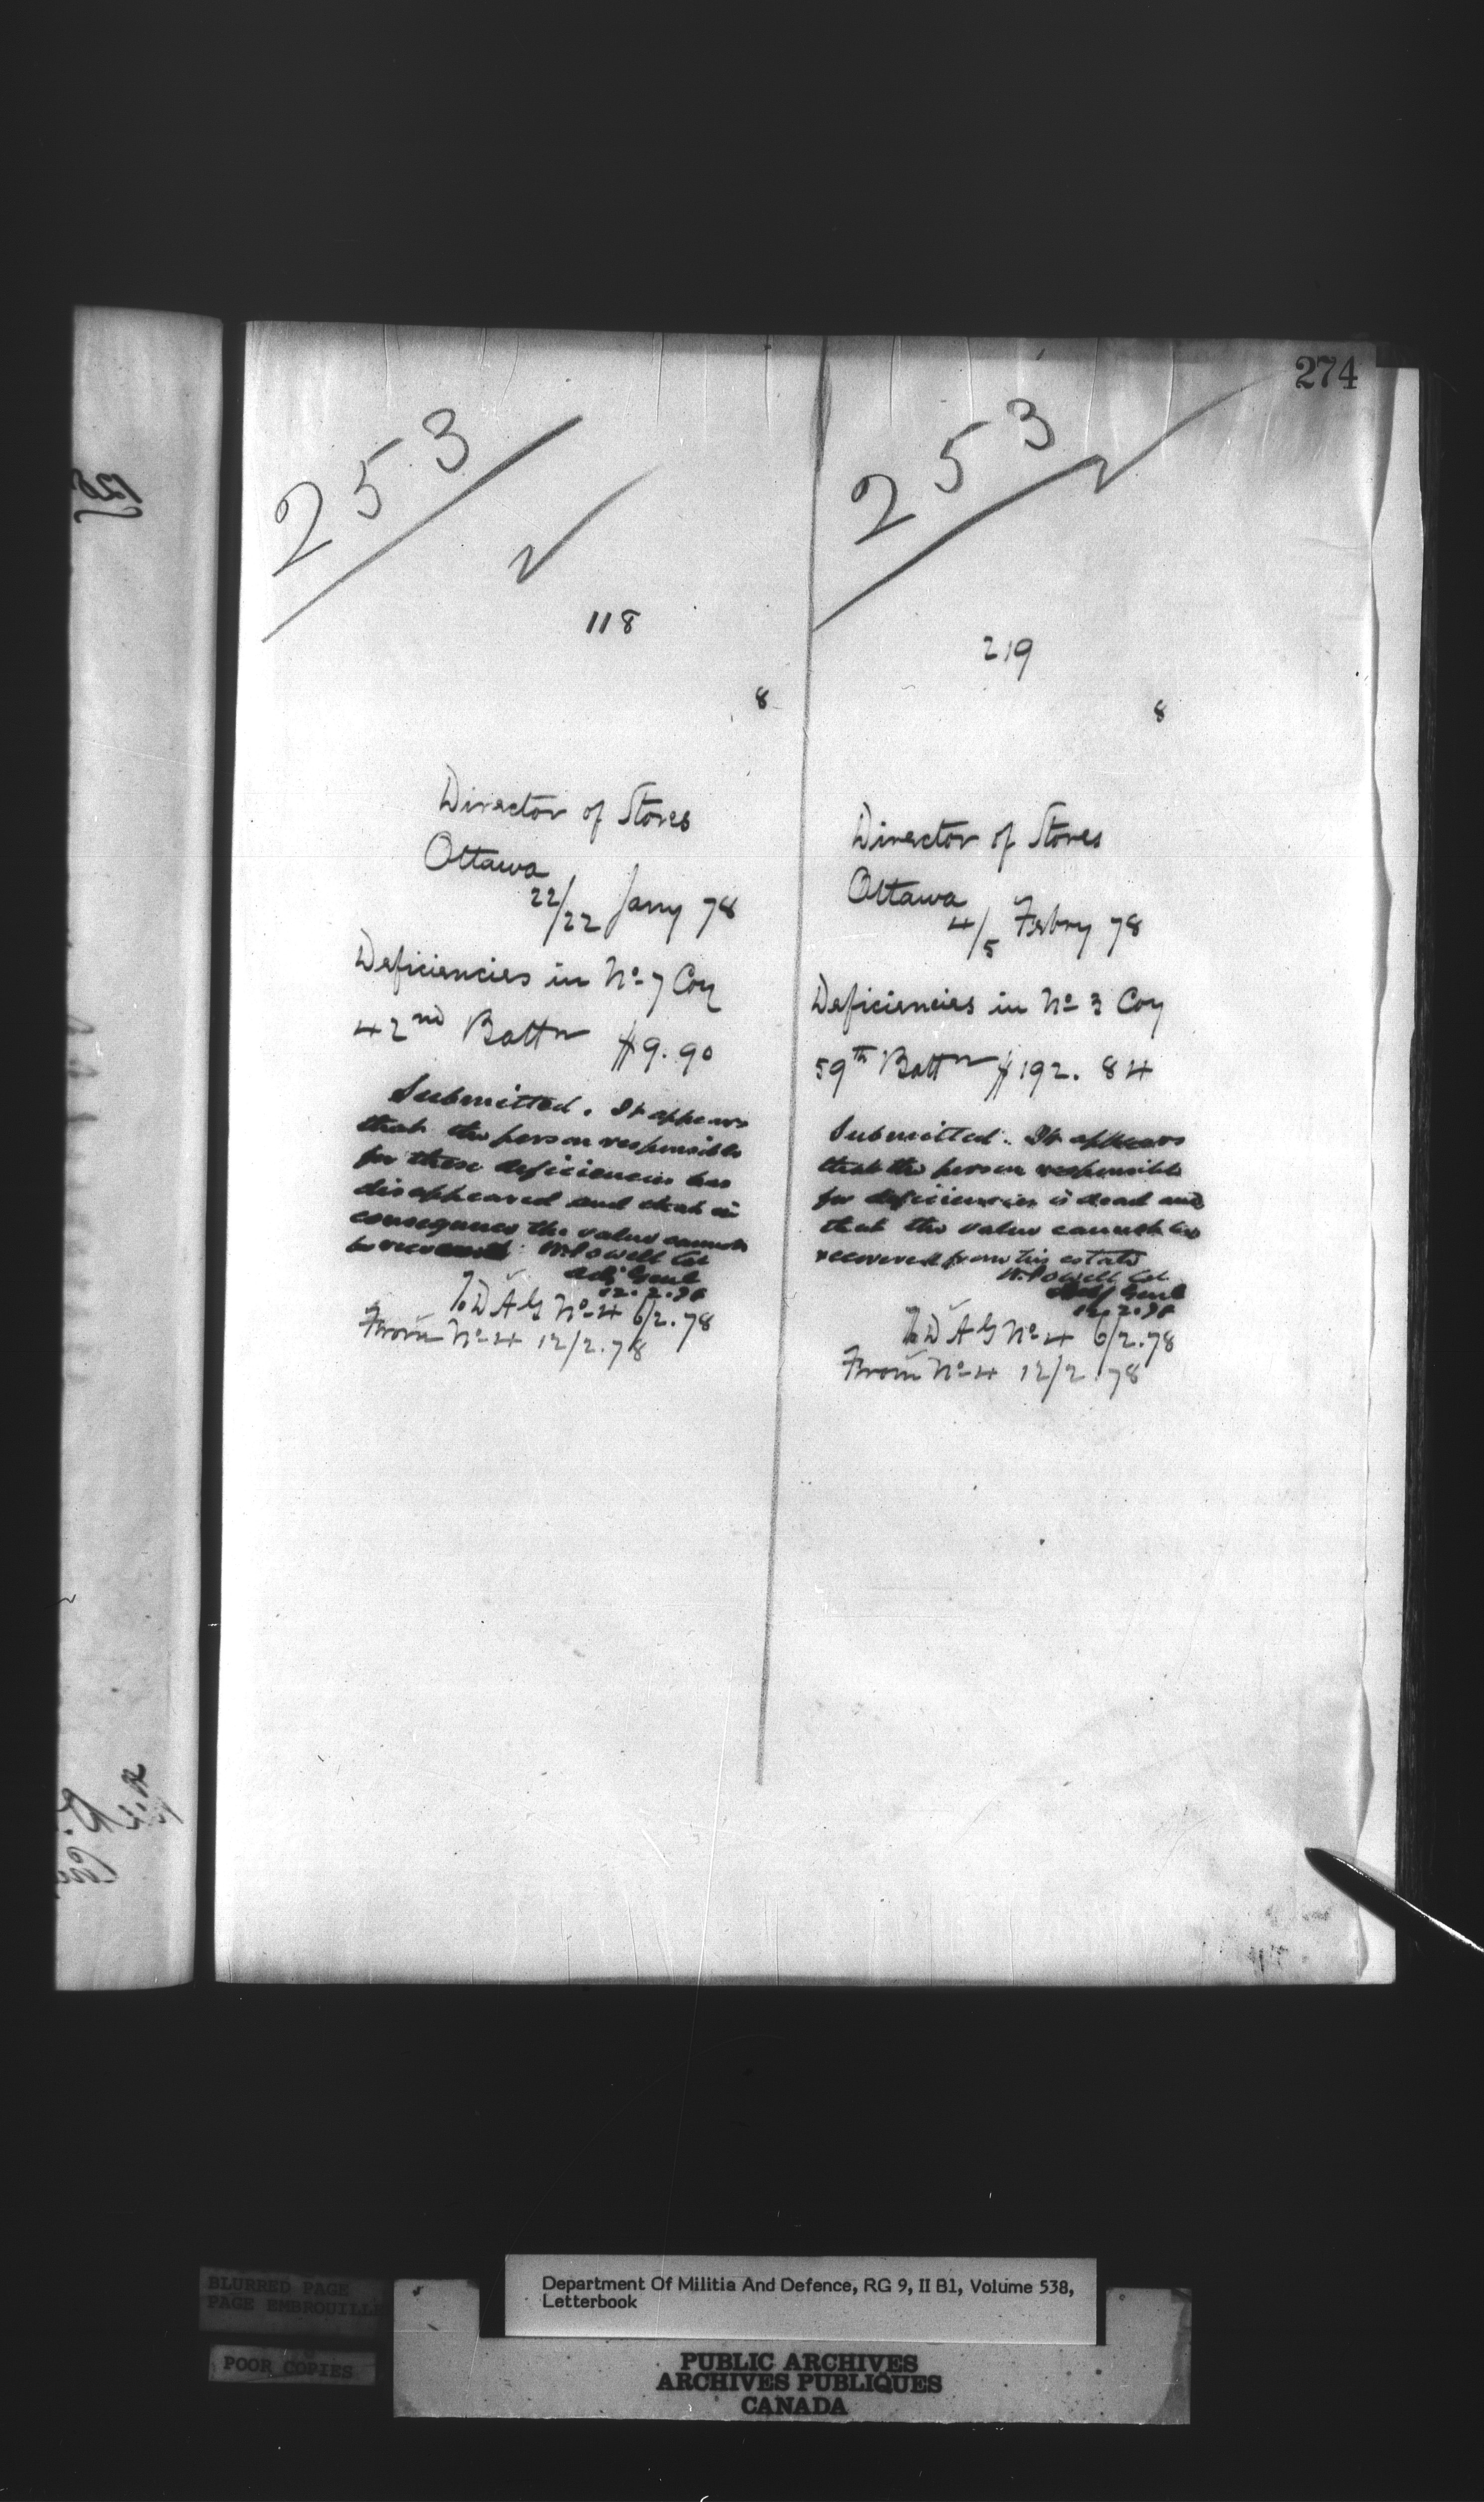 274
253
118
8
Director of Stores
Ottawa
22/22 Jany 78
Deficiencies in No 7 Coy
42nd Battn $9.90
Submitted. It appears
that the person responsible
for these deficiencies has
disappeared and that in
consequence the value cannot
be recovered W. Powell Col
Adj Genl
12.2.78
To D A G No 4 6/2.78
From No 4 12/2.78
253
219
8
Director of Stores
Ottawa
4/5 Febry 78
Deficiencies in No 3 Coy
59th Battn $192.84
Submitted. It appears
that the person responsible
for deficiencies is dead and
that the value cannot be
recovered from his estate
W. Powell Col
Adj Genl
12.2.78
To D A G No 4 6/2.78
From No 4 12/2.78
BLURRED PAGE
PAGE EMBROUILLE
POOR COPIES
Department Of Militia And Defence, RG 9, II B1, Volume 538,
Letterbook
PUBLIC ARCHIVES
ARCHIVES PUBLIQUES
CANADA